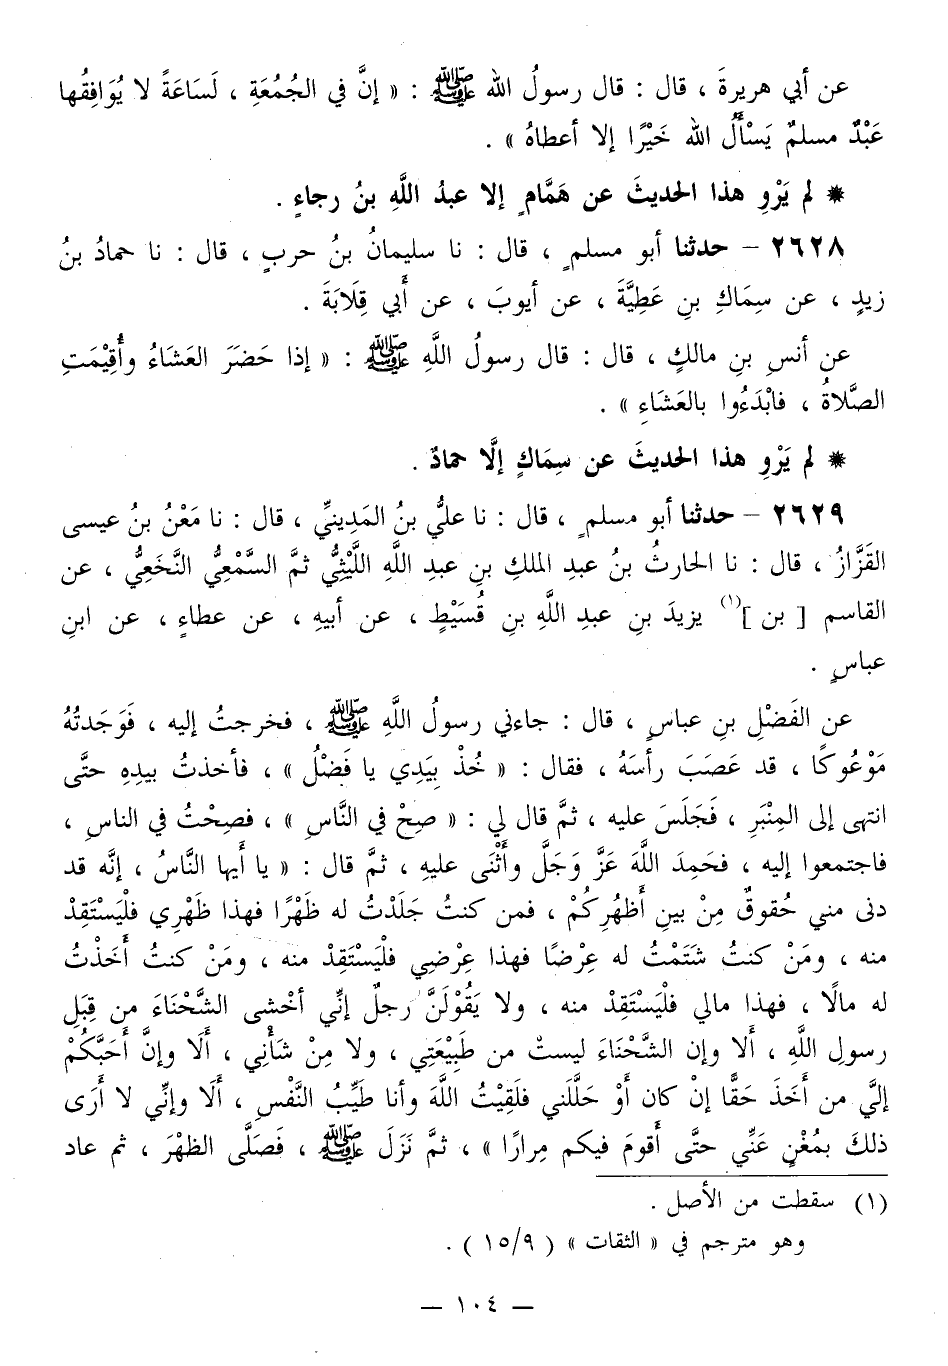 عن أبي هريرةَ ، قال : قال رسولُ الله ﷺ : « إنَّ في الجُمُعَةِ ، لَسَاعَةً لا يُوَافِقُها
عَبْدٌ مسلمٌ يَسْأَلُ الله خَيْرًا إلا أعطاهُ » .
* لم يَرْوِ هذا الحديثَ عن هَمَّامٍ إلا عبدُ اللَّهِ بنُ رجاءٍ .
٢٦٢٨ – حدثنا أبو مسلمٍ ، قال : نا سليمانُ بنُ حربٍ ، قال : نا حمادُ بنُ
زيدٍ ، عن سِمَاكِ بنِ عَطِيَّةَ ، عن أيوبَ ، عن أَبي قِلَابَةَ .
عن أنسِ بنِ مالكٍ ، قال : قال رسولُ اللَّهِ ﷺ : « إذا حَضَرَ العَشَاءُ وأُقِيْمَتِ
الصَّلاةُ ، فابْدَءُوا بالعَشَاءِ » .
* لم يَرْوِ هذا الحديثَ عن سِمَاكٍ إلَّا حمادٌ .
٢٦٢٩ – حدثنا أبو مسلمٍ ، قال : نا عليُّ بنُ المَدِينيِّ ، قال : نا مَعْنُ بنُ عيسى
القَزَّازُ ، قال : نا الحارثُ بنُ عبدِ الملكِ بنِ عبدِ اللهِ اللَّيْثِيُّ ثمَّ السَّمْعِيُّ النَّخَعِيُّ ، عن
القاسم [ بن ](١) يزيدَ بنِ عبدِ اللَّهِ بنِ قُسَيْطٍ ، عن أبيهِ ، عن عطاءٍ ، عن ابنِ
عباسٍ .
عن الفَضْلِ بنِ عباسٍ ، قال : جاءني رسولُ اللَّهِ ﷺ ، فخرجتُ إليه ، فَوَجَدتُهُ
مَوْعُوكًا ، قد عَصَبَ رأسَهُ ، فقال : « خُذْ بِيَدِي يا فَضْلُ » ، فأخذتُ بيدِهِ حتَّى
انتهى إلى المِنْبَرِ ، فَجَلَسَ عليه ، ثمَّ قال لي : « صِحْ في النَّاسِ » ، فصِحْتُ في الناسِ ،
فاجتمعوا إليه ، فحَمِدَ اللَّهَ عَزَّ وَجَلَّ وأَثْنَى عليهِ ، ثمَّ قال : « يا أيها النَّاسُ ، إنَّه قد
دنى مني حُقوقٌ مِنْ بينِ أَظهُرِكُمْ ، فمن كنتُ جَلَدْتُ له ظَهْرًا فهذا ظَهْرِي فلْيَسْتَقِدْ
منه ، ومَنْ كنتُ شَتَمْتُ له عِرْضًا فهذا عِرْضِي فلْيَسْتَقِدْ منه ، ومَنْ كنتُ أَخَذْتُ
له مالًا ، فهذا مالي فلْيَسْتَقِدْ منه ، ولا يَقُوْلَنَّ رجلٌ إنِّي أخْشى الشَّحْنَاءَ من قِبَلِ
رسولِ اللَّهِ ، أَلا وإن الشَّحْنَاءَ ليستْ من طَبِيْعَتِي ، ولا مِنْ شَأْنِي ، أَلَا وإنَّ أَحَبَّكُمْ
إليَّ من أَخَذَ حَقًّا إنْ كان أَوْ حَلَّلَني فلَقِيْتُ اللَّهَ وأنا طَيِّبُ النَّفْسِ ، أَلَا وإنِّي لا أَرَى
ذلكَ بمُغْنٍ عَنِّي حتَّى أقومَ فيكم مِرارًا » ، ثمَّ نَزَلَ ﷺ ، فَصَلَّى الظهْرَ ، ثم عاد
(١) سقطت من الأصل .
وهو مترجم في « الثقات » ( ١٥/٩ ) .
— ١٠٤ —